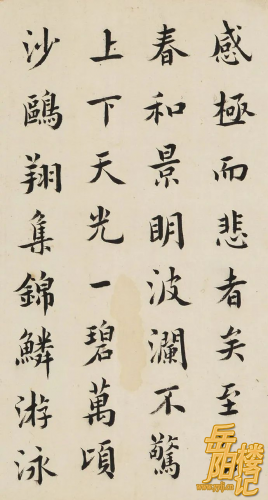 感極而悲者矣至
春和景明波瀾不驚
上下天光一碧萬頃
沙鷗翔集錦鱗游泳
岳阳楼记